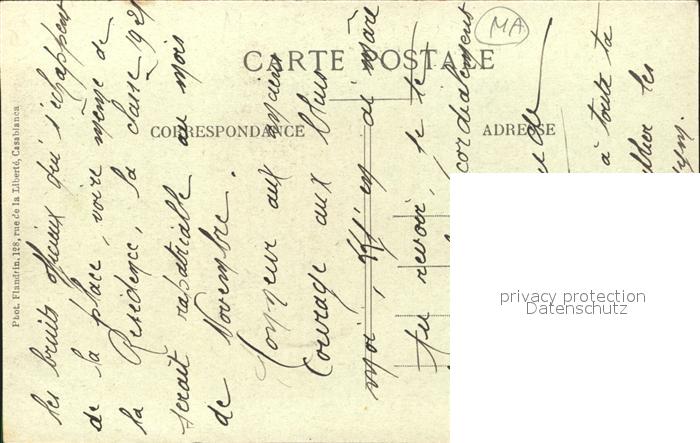 CARTE POSTALE
MA
CORRESPONDANCE
ADRESSE
Phot. Flandrin, 128, rue de la Liberté, Casablanca
les bruits officieux qui s'échappent
de la place, voire même de
la Résidence, la classe 1921
serait rapatriable au mois
de Novembre.
Honneur aux anciens
Courage aux bleus
moi,
Au revoir, je te
cordialement
à toute ta
les
privacy protection
Datenschutz